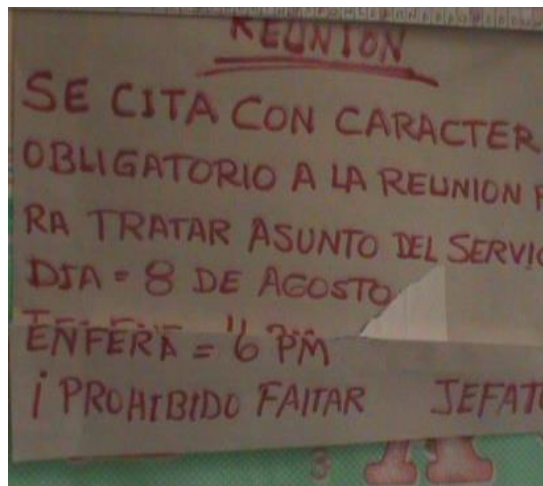 REUNION
SE CITA CON CARACTER
OBLIGATORIO A LA REUNION P
RA TRATAR ASUNTO DEL SERVIC
DIA = 8 DE AGOSTO
ENFERA = "6 PM
¡ PROHIBIDO FALTAR JEFAT